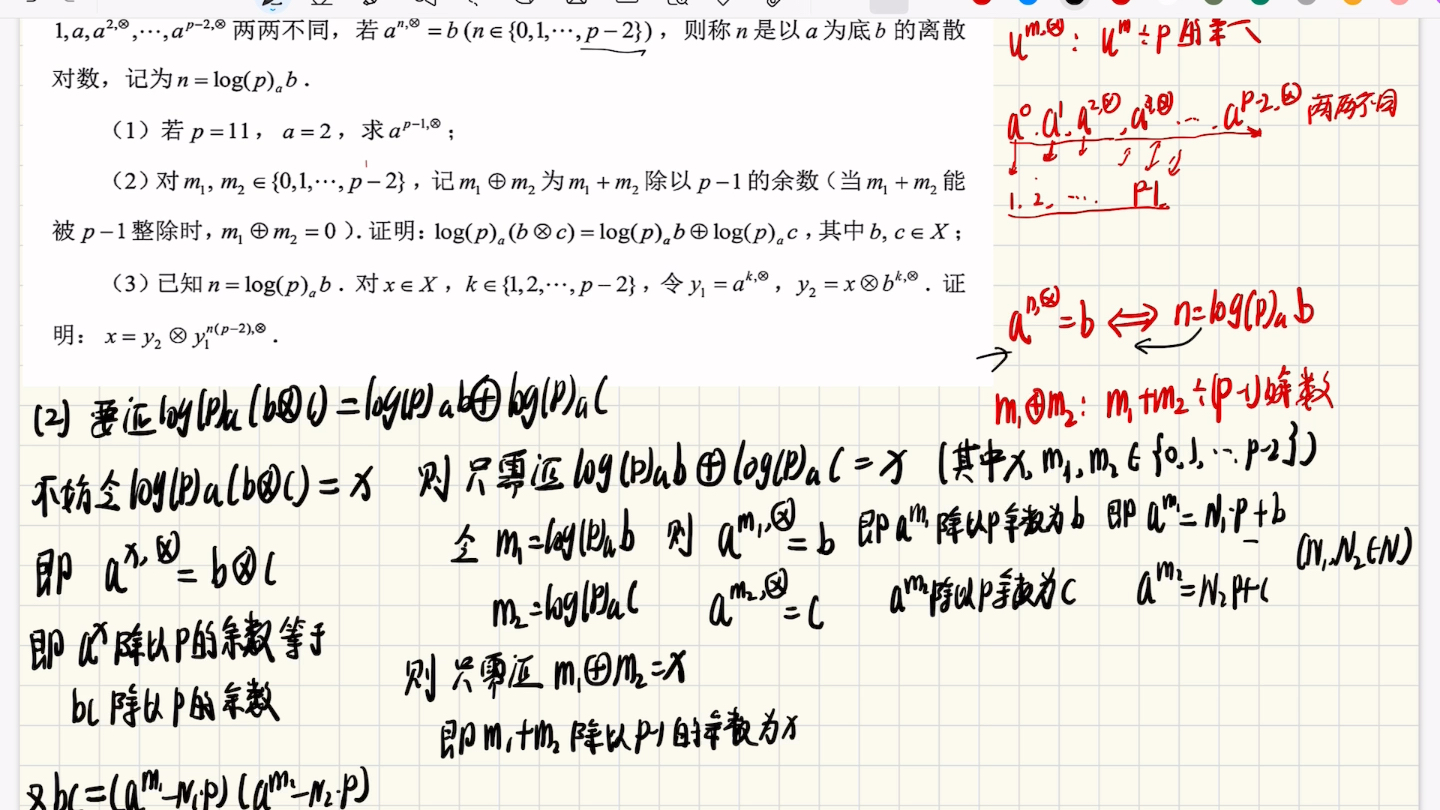 1,a,a^{2,⊗},⋯,a^{p-2,⊗} 两两不同，若 a^{n,⊗}=b(n∈{0,1,⋯,p-2})，则称 n 是以 a 为底 b 的离散
对数，记为 n=log(p)_a b．
（1）若 p=11，a=2，求 a^{p-1,⊗}；
（2）对 m₁, m₂∈{0,1,⋯,p-2}，记 m₁⊕m₂ 为 m₁+m₂ 除以 p-1 的余数（当 m₁+m₂ 能
被 p-1 整除时，m₁⊕m₂=0）．证明：log(p)_a(b⊗c)=log(p)_a b⊕log(p)_a c，其中 b, c∈X；
（3）已知 n=log(p)_a b．对 x∈X，k∈{1,2,⋯,p-2}，令 y₁=a^{k,⊗}，y₂=x⊗b^{k,⊗}．证
明：x=y₂⊗y₁^{n(p-2),⊗}．
u^{m,⊗}: u^m÷p的
a⁰, a¹, a^{2,⊗}, a^{3,⊗}, ⋯, a^{p-2,⊗} 两两不同
1, 2, ⋯ p-1
a^{n,⊗}=b ⟺ n=log(p)_a b
m₁⊕m₂: m₁+m₂÷(p-1)的余数
(2) 要证log(p)a(b⊗c)=log(p)ab⊕log(p)ac
不妨令log(p)a(b⊗c)=x 则只需证log(p)ab⊕log(p)ac=x (其中x,m₁,m₂∈{0,1,⋯p-2})
令 m₁=log(p)ab 则 a^{m₁,⊗}=b 即a^{m₁}除以p余数为b 即a^{m₁}=N₁·p+b
即 a^{x,⊗}=b⊗c
(N₁,N₂∈N)
m₂=log(p)ac a^{m₂,⊗}=c a^{m₂}除以p余数为c a^{m₂}=N₂p+c
即 a^x除以p的余数等于
bc除以p的余数
则只需证 m₁⊕m₂=x
即m₁+m₂除以p-1的余数为x
又bc=(a^{m₁}-N₁p)(a^{m₂}-N₂·p)